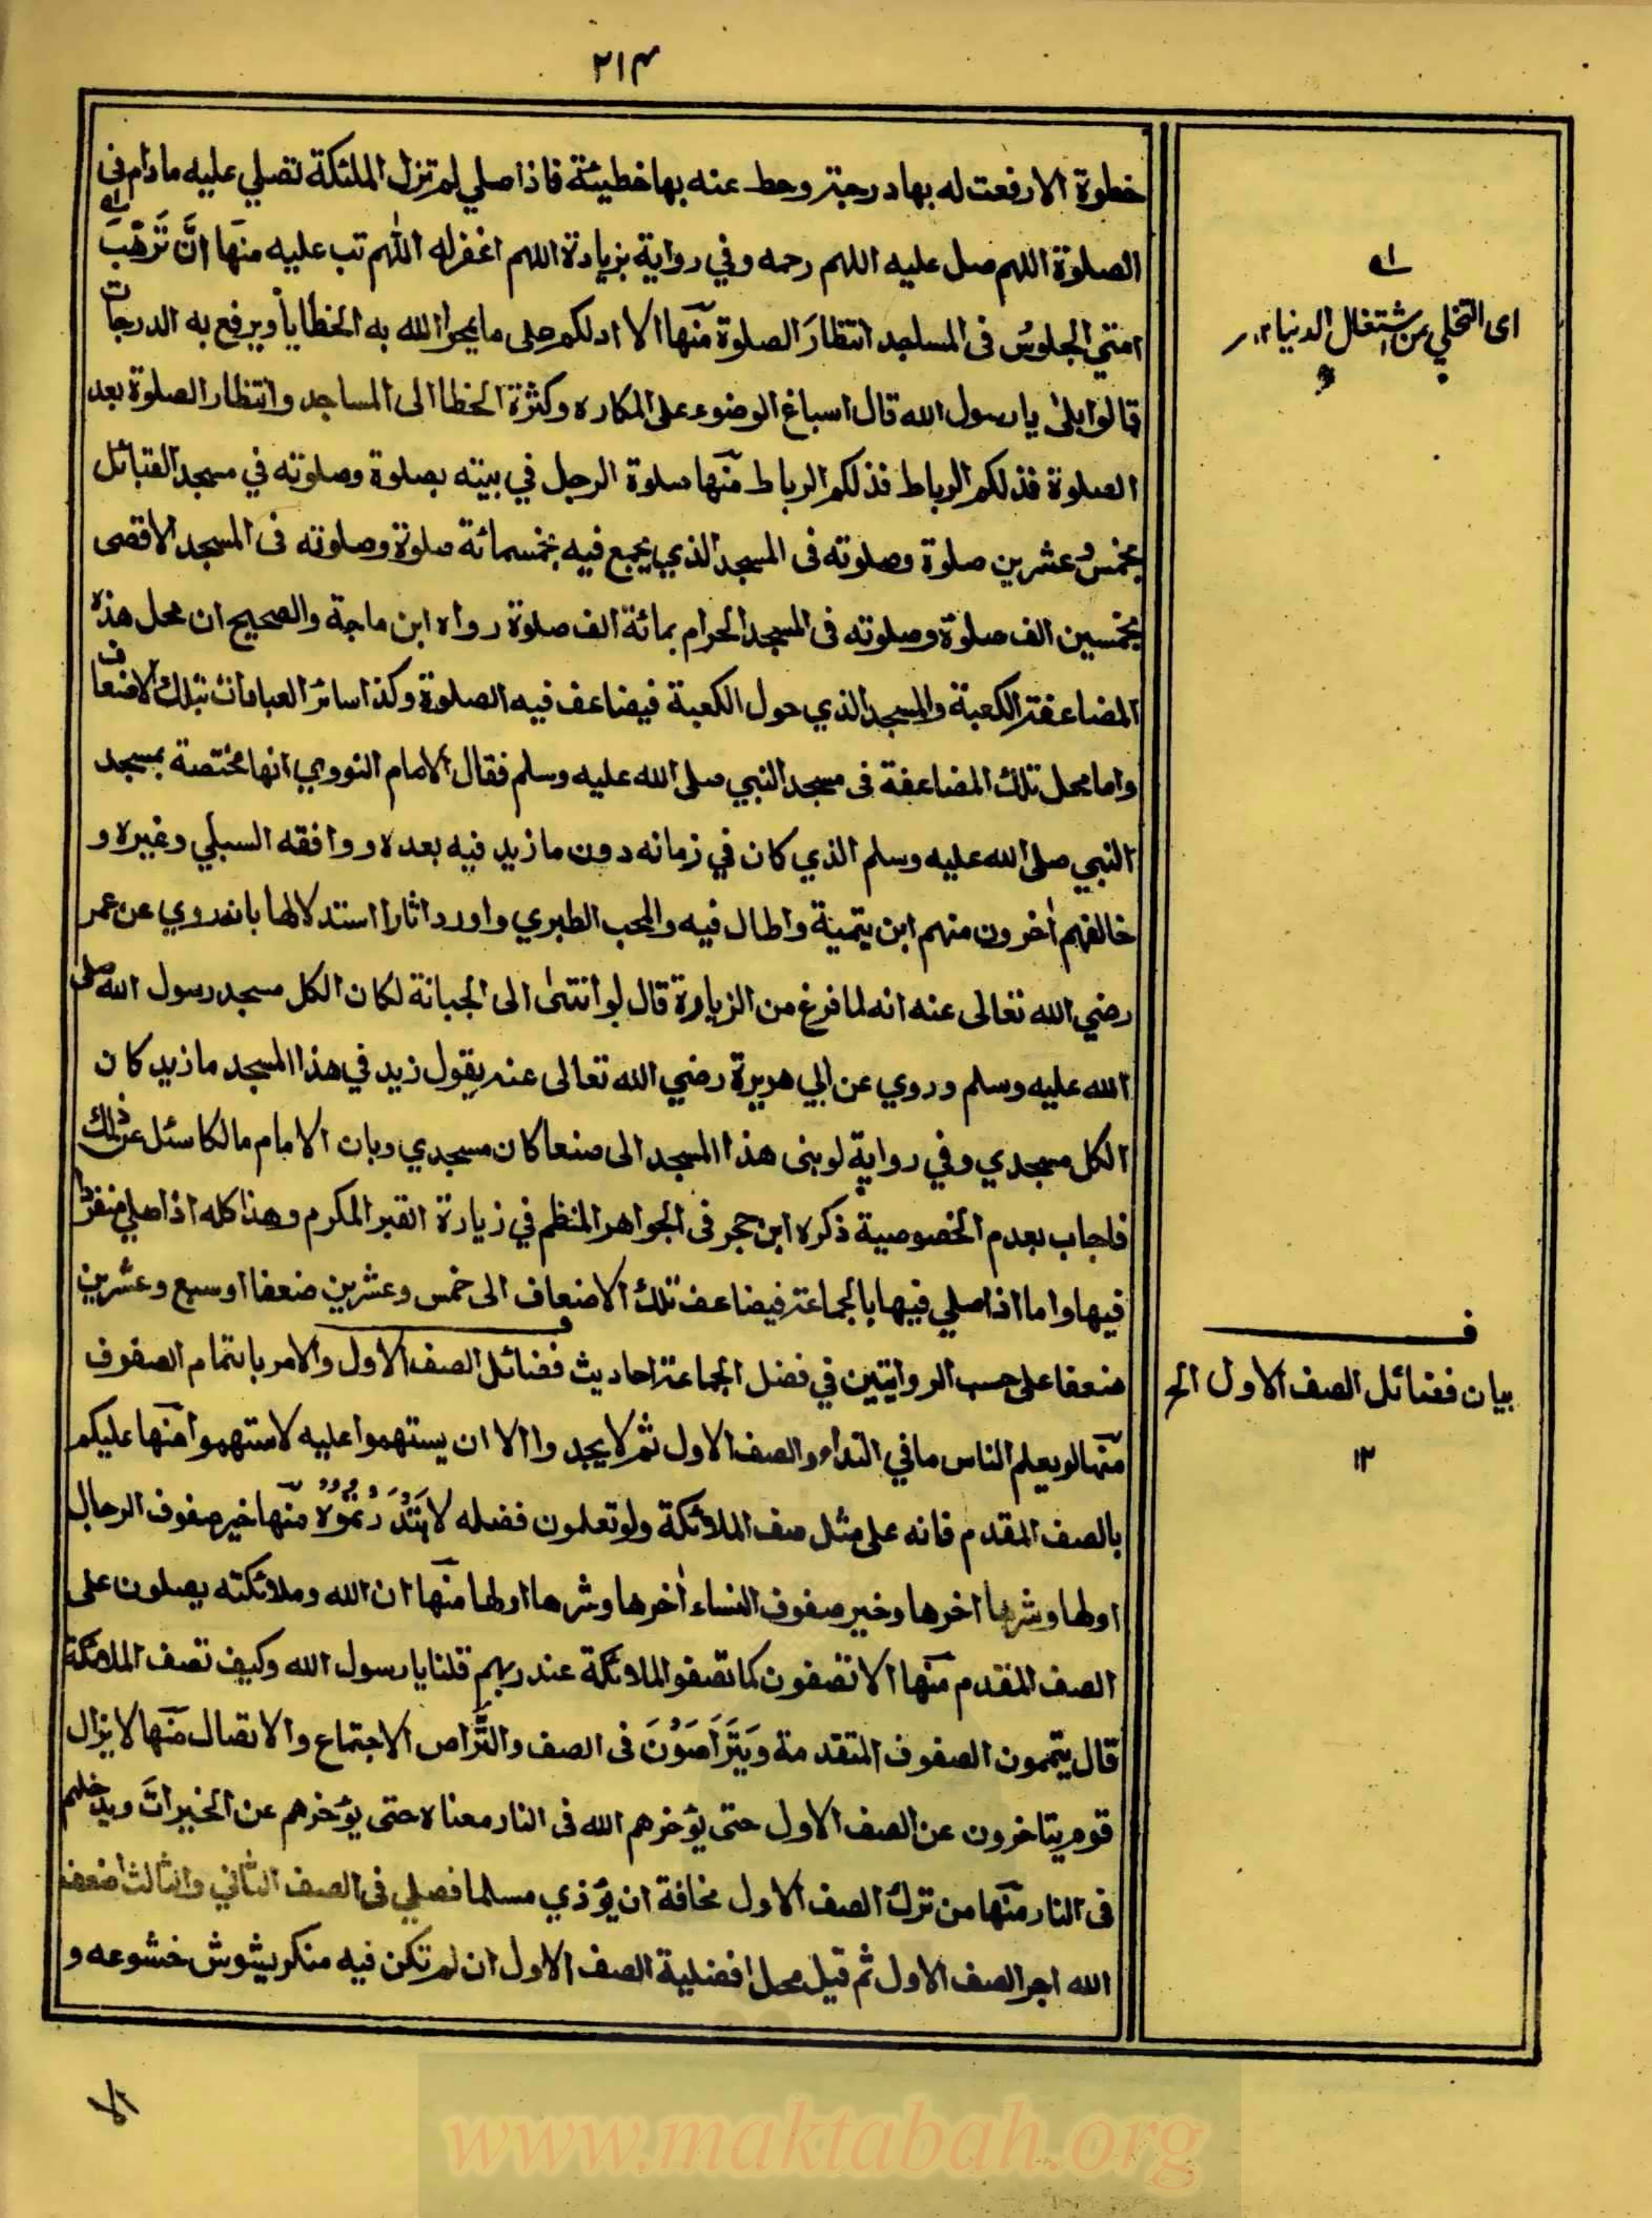 ٢١٤
خطوة الا رفعت له بها درجة وحط عنه بها خطيئة فاذا صلي لم تزل الملئكة تصلي عليه ما دام فى
الصلوة اللهم صل عليه اللهم رحمه وفي رواية بزيادة اللهم اغفر له اللهم تب عليه منها انَّ تَرَهُّبَ
امتي الجلوسُ فى المساجد انتظارَ الصلوة منها الا ادلكم على ما يمحوا الله به الخطايا ويرفع به الدرجات
قالوا بلىٰ يا رسول الله قال اسباغ الوضوء على المكاره وكثرة الخطا الى المساجد وانتظار الصلوة بعد
الصلوة فذلكم الرباط فذلكم الرباط منها صلوة الرجل في بيته بصلوة وصلوته في مسجد القبائل
بخمس وعشرين صلوة وصلوته فى المسجد الذي يجمع فيه بخمسمائة صلوة وصلوته فى المسجد الاقصى
بخمسين الف صلوة وصلوته فى المسجد الحرام بمائة الف صلوة رواه ابن ماجة والصحيح ان محل هذه
المضاعفة الكعبة والمسجد الذي حول الكعبة فيضاعف فيه الصلوة وكذا سائر العبادات بتلك الاضعاف
واما محل تلك المضاعفة فى مسجد النبي صلى الله عليه وسلم فقال الامام النووي انها مختصة بمسجد
النبي صلى الله عليه وسلم الذي كان في زمانه دون ما زيد فيه بعده ووافقه السبكي وغيره و
خالفهم اٰخرون منهم ابن تيمية واطال فيه والمحب الطبري واورد اثارا استدلالها بانه روي عن عمر
رضي الله تعالى عنه انه لما فرغ من الزيادة قال لو انتهىٰ الى الجبانة لكان الكل مسجد رسول الله صلى
الله عليه وسلم وروي عن ابي هريرة رضي الله تعالى عنه يقول زيد في هذا المسجد ما زيد كان
الكل مسجدي وفي رواية لو بنى هذا المسجد الى صنعا كان مسجدي وبان الامام مالكا سئل عن ذلك
فاجاب بعدم الخصوصية ذكره ابن حجر فى الجواهر المنظم في زيارة القبر المكرم وهذا كله اذا صلي منفردا
فيها واما اذا صلي فيها بالجماعة فيضاعف تلك الاضعاف الى خمس وعشرين ضعفا او سبع وعشرين
ضعفا على حسب الروايتين في فضل الجماعة احاديث فضائل الصف الاول والامر باتمام الصفوف
منها لو يعلم الناس ما في النداء والصف الاول ثم لا يجدوا الا ان يستهموا عليه لاستهموا منها عليكم
بالصف المقدم فانه على مثل صف الملائكة ولو تعلمون فضله لابْتَدَرْتُمُوْهُ منها خير صفوف الرجال
اولها وشرها اخرها وخير صفوف النساء اٰخرها وشرها اولها منها ان الله وملائكته يصلون على
الصف المقدم منها الا تصفون كما تصفو الملائكة عند ربهم قلنا يا رسول الله وكيف تصف الملائكة
قال يتممون الصفوف المتقدمة ويَتَرَاصَوْنَ فى الصف والتَّراص الاجتماع والاتصال منها لا يزال
قوم يتاخرون عن الصف الاول حتى يؤخرهم الله فى النار معناه حتى يؤخرهم عن الخيرات ويدخلهم
فى النار منها من ترك الصف الاول مخافة ان يؤذي مسلما فصلي فى الصف الثاني والثالث اضعف
الله اجر الصف الاول ثم قيل محل افضلية الصف الاول ان لم تكن فيه منكر يشوش خشوعه و
اى التخلي عن اشتغال الدنيا ١٢
ف
بيان فضائل الصف الاول الخ
١٢
الا
www.maktabah.org